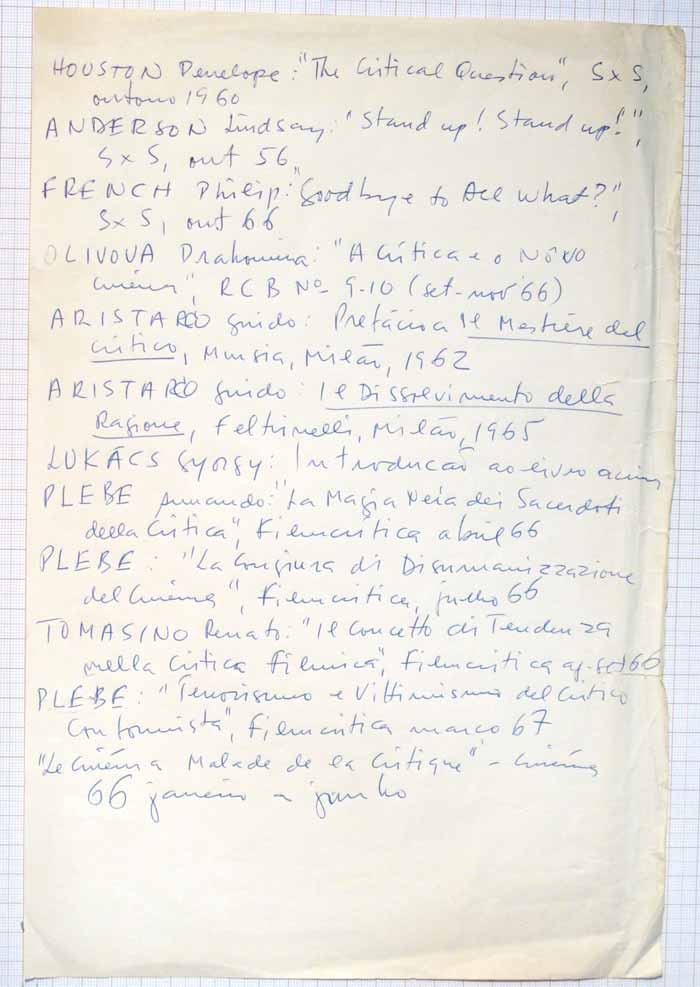 HOUSTON Penelope: "The Critical Question", S x S,
outono 1960
ANDERSON Lindsay: "Stand up! Stand up!",
S x S, out 56
FRENCH Philip: "Goodbye to All What?",
S x S, out 66
OLIVOVA Drahomira: "A Crítica e o Nôvo
Cinéma", RCB Nº 9-10 (set-nov 66)
ARISTARCO Guido: Prefácio a Il Mestiere del
Critico, Mursia, Milão, 1962
ARISTARCO Guido: Il Dissolvimento della
Ragione, Feltrinelli, Milão, 1965
LUKÁCS Gyorgy: Introducão ao livro acima
PLEBE Armando: "La Magia Nera dei Sacerdoti
della Critica", Filmcritica abril 66
PLEBE: "La Congiura di Disumanizzazione
del Cinéma", Filmcritica, julho 66
TOMASINO Renato: "Il Concetto di Tendenza
nella Critica Filmica", Filmcritica ag-set 66
PLEBE: "Terrorismo e Vittimismo del Critico
Conformista", Filmcritica marco 67
"Le Cinéma Malade de la Critique" - Cinéma
66 janeiro a junho